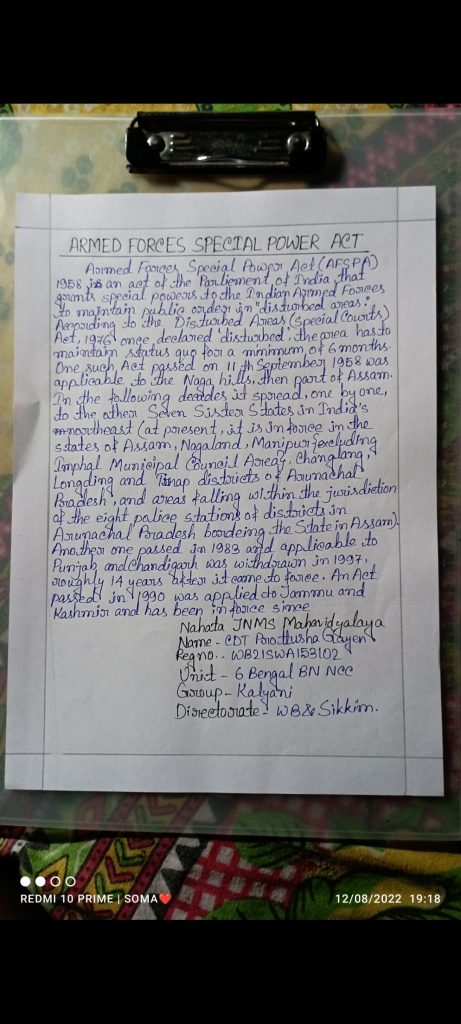 ARMED FORCES SPECIAL POWER ACT
Armed Forces Special Power Act (AFSPA)
1958, is an act of the Parliement of India that
grants special powers to the Indian Armed Forces
to maintain public order in "disturbed areas".
According to the Disturbed Areas (Special Courts)
Act, 1976 once declared 'disturbed', the area has to
maintain status quo for a minimum of 6 months.
One such Act passed on 11th September 1958 was
applicable to the Naga hills, then part of Assam.
In the following decades it spread, one by one,
to the other Seven Sister States in India's
northeast (at present, it is in force in the
states of Assam, Nagaland, Manipur {excluding
Imphal Municipal Council Area}, Changlang,
Longding and Tirap districts of Arunachal
Pradesh, and areas falling within the jurisdiction
of the eight police stations of districts in
Arunachal Pradesh bordeing the State in Assam).
Another one passed in 1983 and applicable to
Punjab and Chandigarh was withdrawn in 1997,
roughly 14 years after it came to force. An Act
passed in 1990 was applied to Jammu and
Kashmir and has been in force since
Nahata JNMS Mahavidyalaya
Name - CDT Prottusha Gayen
Reg no.. WB21SWA153102
Unit - 6 Bengal BN NCC
Group - Kalyani
Directorate - WB & Sikkim.
REDMI 10 PRIME | SOMA❤
12/08/2022 19:18